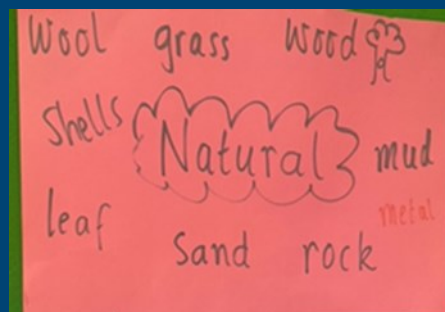 Wool grass wood
Shells
Natural mud
leaf metal
sand rock